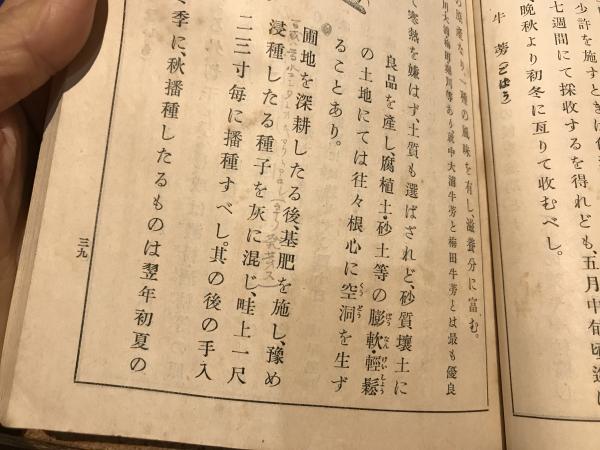 少許を施すときは
七週間にて採收するを得れども、五月中旬頃
晩秋より初冬に亙りて收むべし。
牛蒡(ごばう)
種の風味を有し、滋養分に富む。
川大浦梅田堀川等あり就中大浦牛蒡と梅田牛蒡とは最も優良
て寒熱を嫌はず、土質も選ばされど、砂質壤土に
良品を產し、腐植土・砂土等の膨軟・輕鬆
ばうなんけいしょう
の土地にては往々根心に空洞を生ず
くうどう
ることあり。
圃地を深耕したる後、基肥を施し、豫め
浸種したる種子を灰に混じ、畦上一尺
二三寸每に播種すべし。其の後の手入
季に、秋播種したるものは翌年初夏の
三九